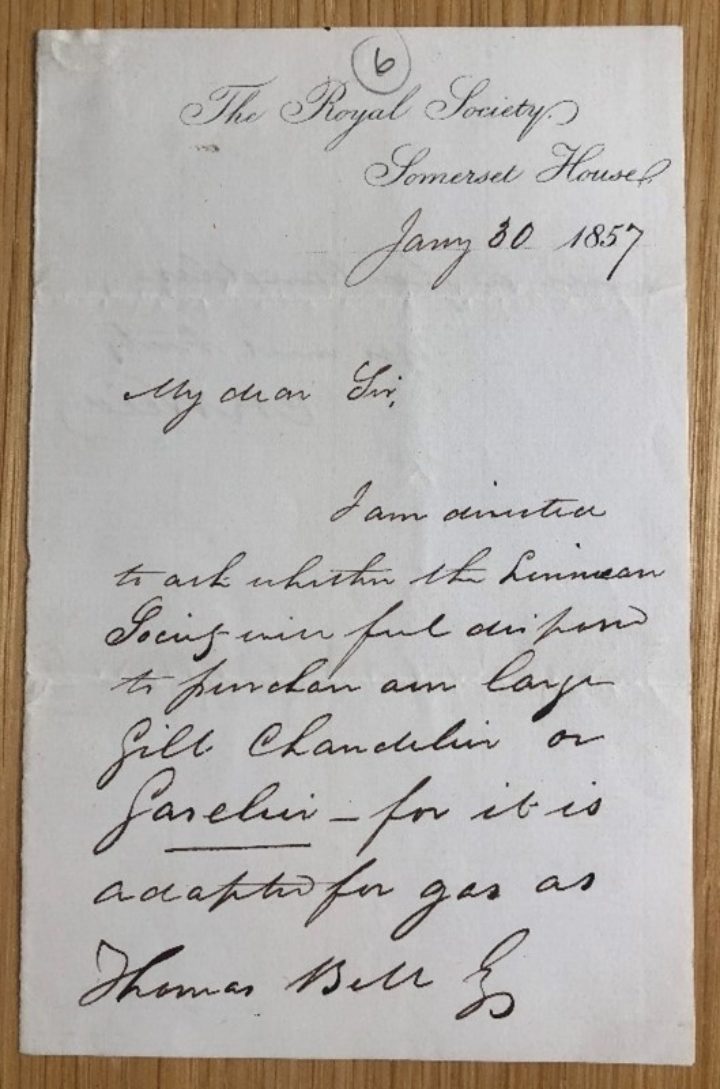 6
The Royal Society.
Somerset House.
Jany 30 1857
My dear Sir,
I am directed
to ask whether the Linnean
Society will feel disposed
to purchase our large
Gilt Chandelier or
Gaselier – for it is
adapted for gas as
Thomas Bell Esq